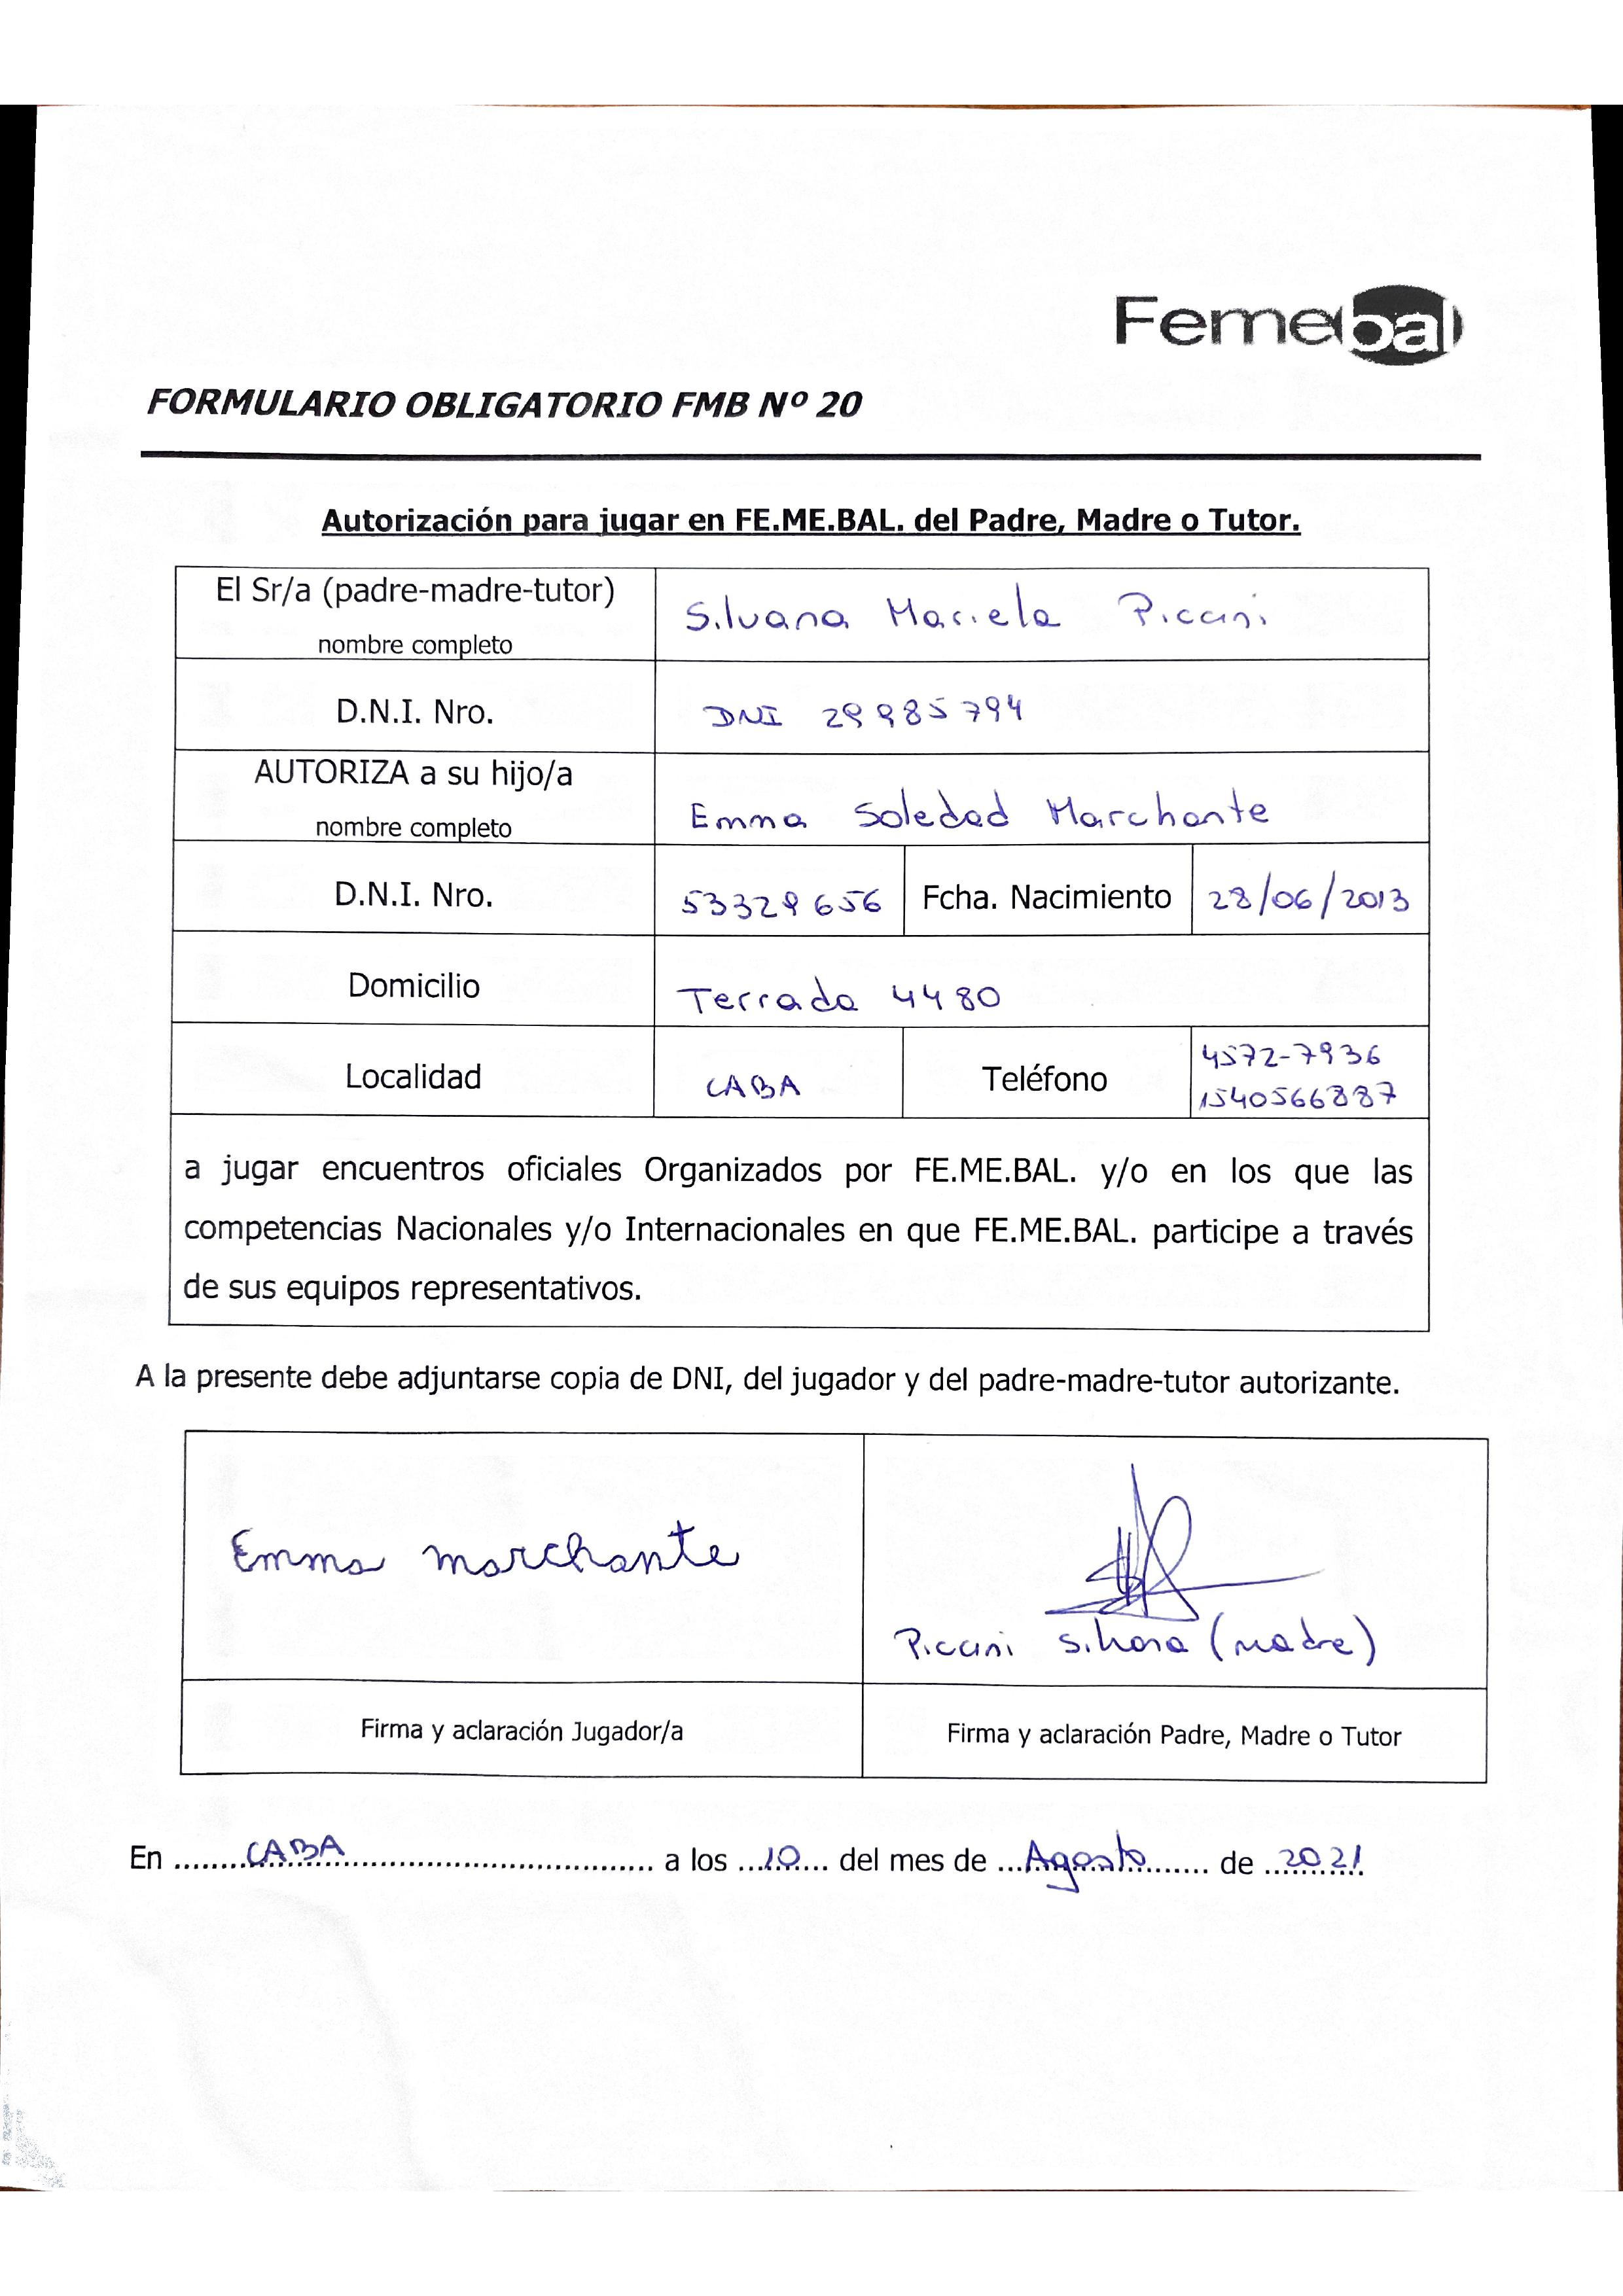 Femebal
FORMULARIO OBLIGATORIO FMB Nº 20
Autorización para jugar en FE.ME.BAL. del Padre, Madre o Tutor.
El Sr/a (padre-madre-tutor)
nombre completo
Silvana Mariela Piccini
D.N.I. Nro.
DNI 29985794
AUTORIZA a su hijo/a
nombre completo
Emma Soledad Marchante
D.N.I. Nro.
53329656
Fcha. Nacimiento
28/06/2013
Domicilio
Terrada 4480
Localidad
CABA
Teléfono
4572-7936
1540566887
a jugar encuentros oficiales Organizados por FE.ME.BAL. y/o en los que las
competencias Nacionales y/o Internacionales en que FE.ME.BAL. participe a través
de sus equipos representativos.
A la presente debe adjuntarse copia de DNI, del jugador y del padre-madre-tutor autorizante.
Emma Marchante
Piccini Silvana (madre)
Firma y aclaración Jugador/a
Firma y aclaración Padre, Madre o Tutor
En ........CABA............................................ a los ...10.... del mes de ...Agosto....... de 2021